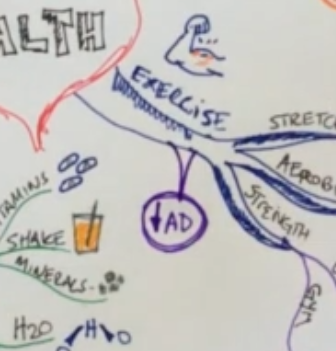 ALTH
EXERCISE
STRETCH
AEROB
STRENGTH
GYM
↓AD
TAMINS
SHAKE
MINERALS
H2O
H O